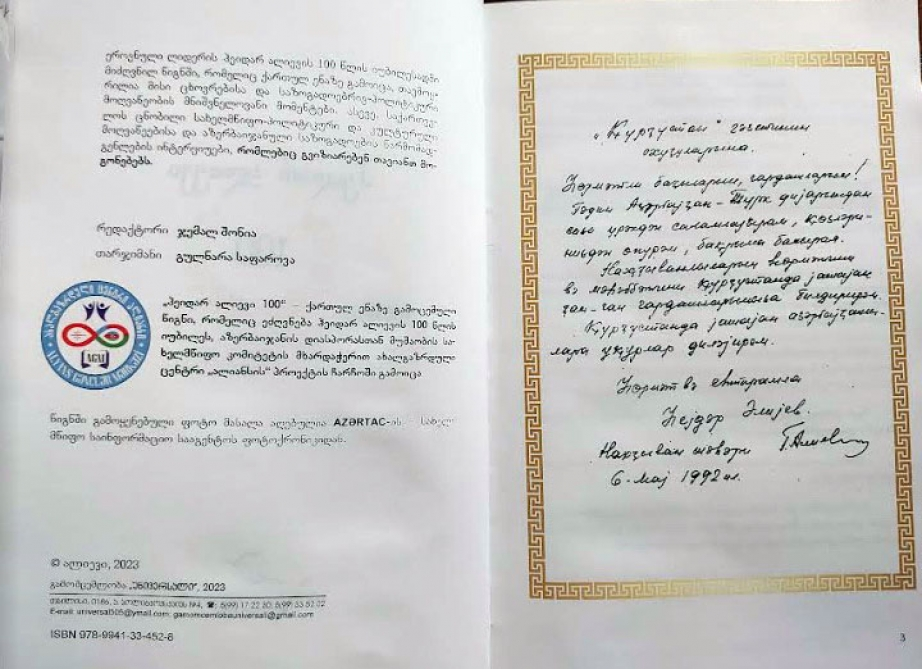 ეროვნული ლიდერის ჰეიდარ ალიევის 100 წლის იუბილესადმი
მიძღვნილ წიგნში, რომელიც ქართულ ენაზე გამოიცა, თავმოყ-
რილია მისი ცხოვრებისა და საზოგადოებრივ-პოლიტიკური
მოღვაწეობის მნიშვნელოვანი მომენტები. ასევე, საქართვე-
ლოს ცნობილი სახელმწიფო-პოლიტიკური და კულტურული
მოღვაწეებისა და აზერბაიჯანული საზოგადოების წარმომად-
გენლების ინტერვიუები, რომლებიც გვიზიარებენ თავიანთ მო-
გონებებს.
რედაქტორი ჯემალ შონია
თარჯიმანი გულნარა საფაროვა
AGAJ
„ჰეიდარ ალიევი 100“ – ქართულ ენაზე გამოცემული
წიგნი, რომელიც ეძღვნება ჰეიდარ ალიევის 100 წლის
იუბილეს, აზერბაიჯანის დიასპორასთან მუშაობის სა-
ხელმწიფო კომიტეტის მხარდაჭერით ახალგაზრდული
ცენტრი „ალიანსის“ პროექტის ჩარჩოში გამოიცა
წიგნში გამოყენებული ფოტო მასალა აღებულია AZƏRTAC-ის – სახელ-
მწიფო საინფორმაციო სააგენტოს ფოტოქრონიკიდან.
© ალიევი, 2023
გამომცემლობა „უნივერსალი“, 2023
თბილისი, 0186, ა. პოლიტკოვსკაიას №4, ☎: 5(99) 17 22 30; 5(99) 33 52 02
E-mail: universal505@ymail.com; gamomcemlobauniversali@gmail.com
ISBN 978-9941-33-452-8
„Ҝүрҹүстан“ гәзетинин
охуҹуларына.
Һөрмәтли баҹыларым, гардашларым!
Гәдим Азәрбајҹан-Түрк дијарындан
сизи үрәкдән саламлајырам, ҝөзләри-
низдән өпүрәм, бағрыма басырам.
Нахчыванлыларын һөрмәтини
вә мәһәббәтини Ҝүрҹүстанда јашајан
ҹан-ҹан гардашларымыза билдирирәм.
Ҝүрҹүстанда јашајан азәрбајҹанлы-
лара уғурлар диләјирәм.
Һөрмәт вә еһтирамла
Һејдәр Әлијев.
Нахчыван шәһәри
6-мај 1992 ил.
3